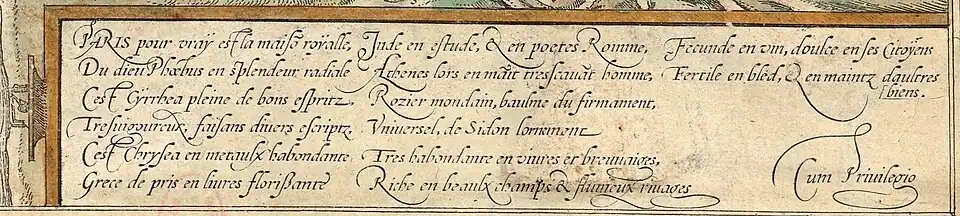 PARIS pour vray est la maisõ royalle,
Du dieu Phœbus en splendeur radiale
C'est Cyrrhea pleine de bons espritz,
Tresuigoureux, faisans diuers escriptz
C'est Chrysea en metaulx habondante
Grece de pris en liures florißante
Jnde en estude, & en poetes Romme,
Athenes lors en mañt tresscauãt homme,
Rozier mondain, baulme du firmament,
Vniuersel, de Sidon lornement
Tres habondante en viures et breuuaiges,
Riche en beaulx champs & fluuieux riuages
Fecunde en vin, doulce en ses Citoyens
Fertile en bled, & en maintz daultres
biens.
Cum Priuilegio